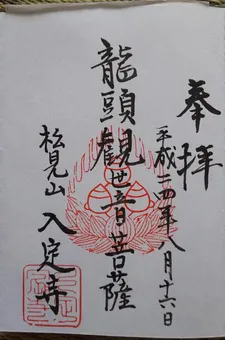 奉拝
平成二四年八月十六日
龍頭觀世音菩薩
松見山 入定寺